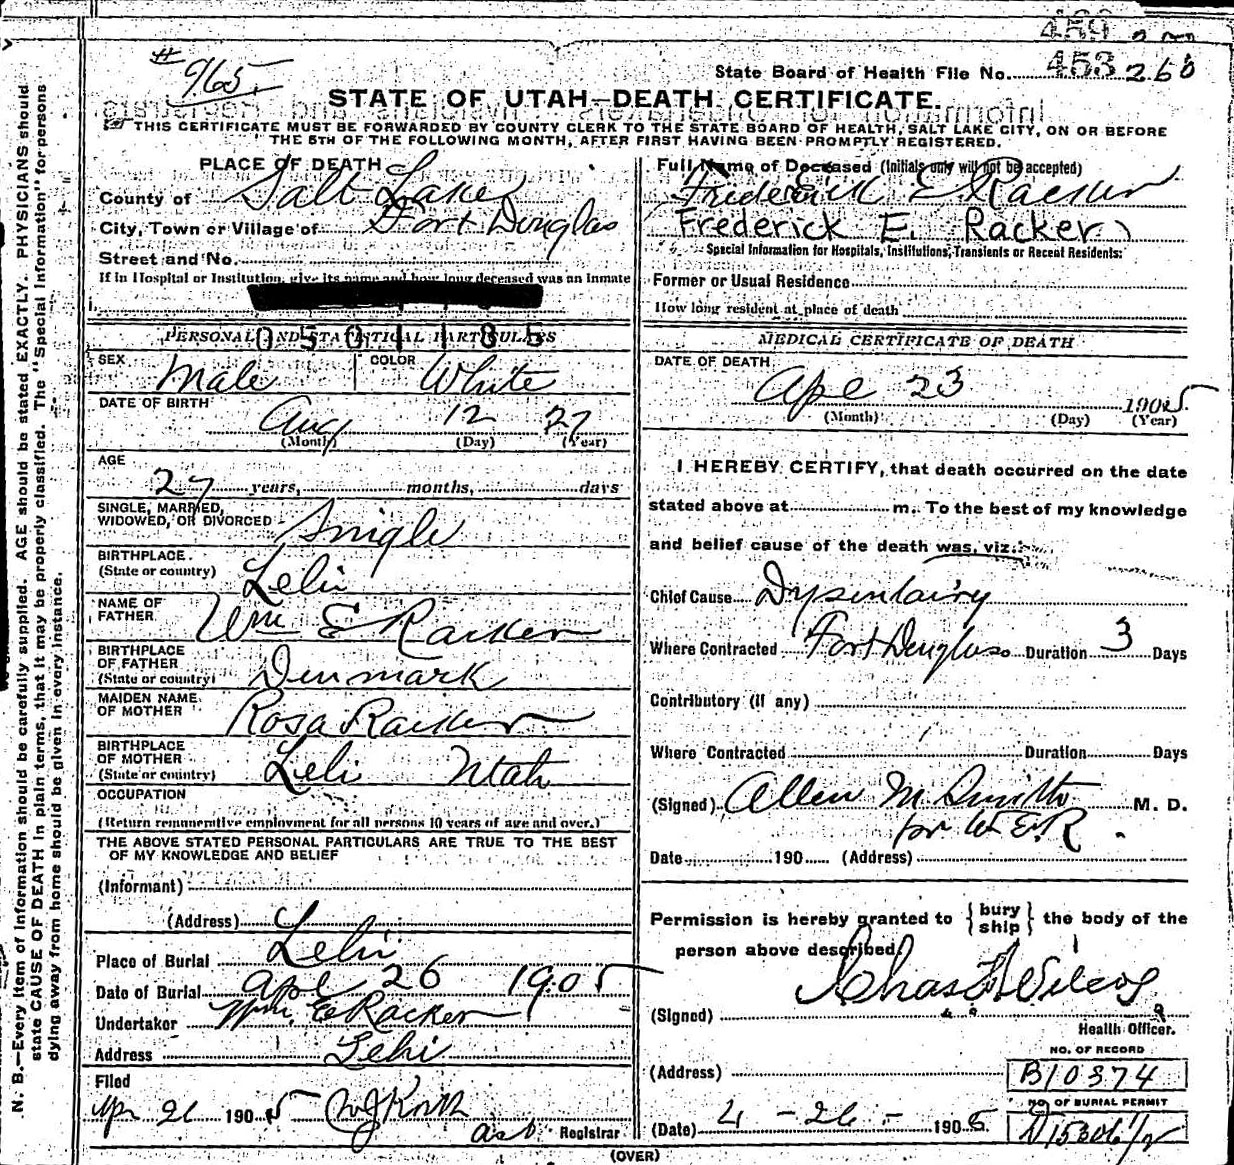 # 965.
453 260
State Board of Health File No.
STATE OF UTAH—DEATH CERTIFICATE.
THIS CERTIFICATE MUST BE FORWARDED BY COUNTY CLERK TO THE STATE BOARD OF HEALTH, SALT LAKE CITY, ON OR BEFORE
THE 5TH OF THE FOLLOWING MONTH, AFTER FIRST HAVING BEEN PROMPTLY REGISTERED.
N. B.—Every item of information should be carefully supplied. AGE should be stated EXACTLY. PHYSICIANS should
state CAUSE OF DEATH in plain terms, that it may be properly classified. The "Special Information" for persons
dying away from home should be given in every instance.
PLACE OF DEATH
County of Salt Lake
City, Town or Village of Fort Douglas
Street and No.
If in Hospital or Institution, give its name and how long deceased was an inmate
0501185
PERSONAL AND STATISTICAL PARTICULARS
SEX Male COLOR White
DATE OF BIRTH Aug 12 27
(Month) (Day) (Year)
AGE
27 years, months, days
SINGLE, MARRIED,
WIDOWED, OR DIVORCED Snigle
BIRTHPLACE
(State or country) Lehi
NAME OF
FATHER Wm E Racker
BIRTHPLACE
OF FATHER
(State or country) Denmark
MAIDEN NAME
OF MOTHER Rosa Racker
BIRTHPLACE
OF MOTHER
(State or country) Lehi Utah
OCCUPATION
(Return remunerative employment for all persons 10 years of age and over.)
THE ABOVE STATED PERSONAL PARTICULARS ARE TRUE TO THE BEST
OF MY KNOWLEDGE AND BELIEF
(Informant)
(Address)
Place of Burial Lehi
Date of Burial Apl 26 1905
Undertaker Wm. E Racker
Address Lehi
Filed
Apr 26 1905
Registrar
Full Name of Deceased (Initials only will not be accepted)
Frederick E Racker
Frederick E. Racker)
Special Information for Hospitals, Institutions, Transients or Recent Residents:
Former or Usual Residence
How long resident at place of death
MEDICAL CERTIFICATE OF DEATH
DATE OF DEATH
Apl 23 1905
(Month) (Day) (Year)
I HEREBY CERTIFY, that death occurred on the date
stated above at m. To the best of my knowledge
and belief cause of the death was, viz.:
Chief Cause Dysentairy
Where Contracted Fort Douglass Duration 3 Days
Contributory (if any)
Where Contracted Duration Days
(Signed) Allen M Smith M. D.
for W E R
Date 190 (Address)
Permission is hereby granted to {bury
ship} the body of the
person above described
(Signed) Chas F Wilcox
Health Officer.
NO. OF RECORD
(Address) B10374
NO. OF BURIAL PERMIT
(Date) 4-26- 1905 D15306 1/2
(OVER)